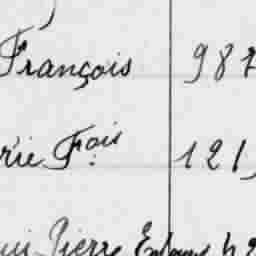 François 987
rie F.ois 121,
Pierre